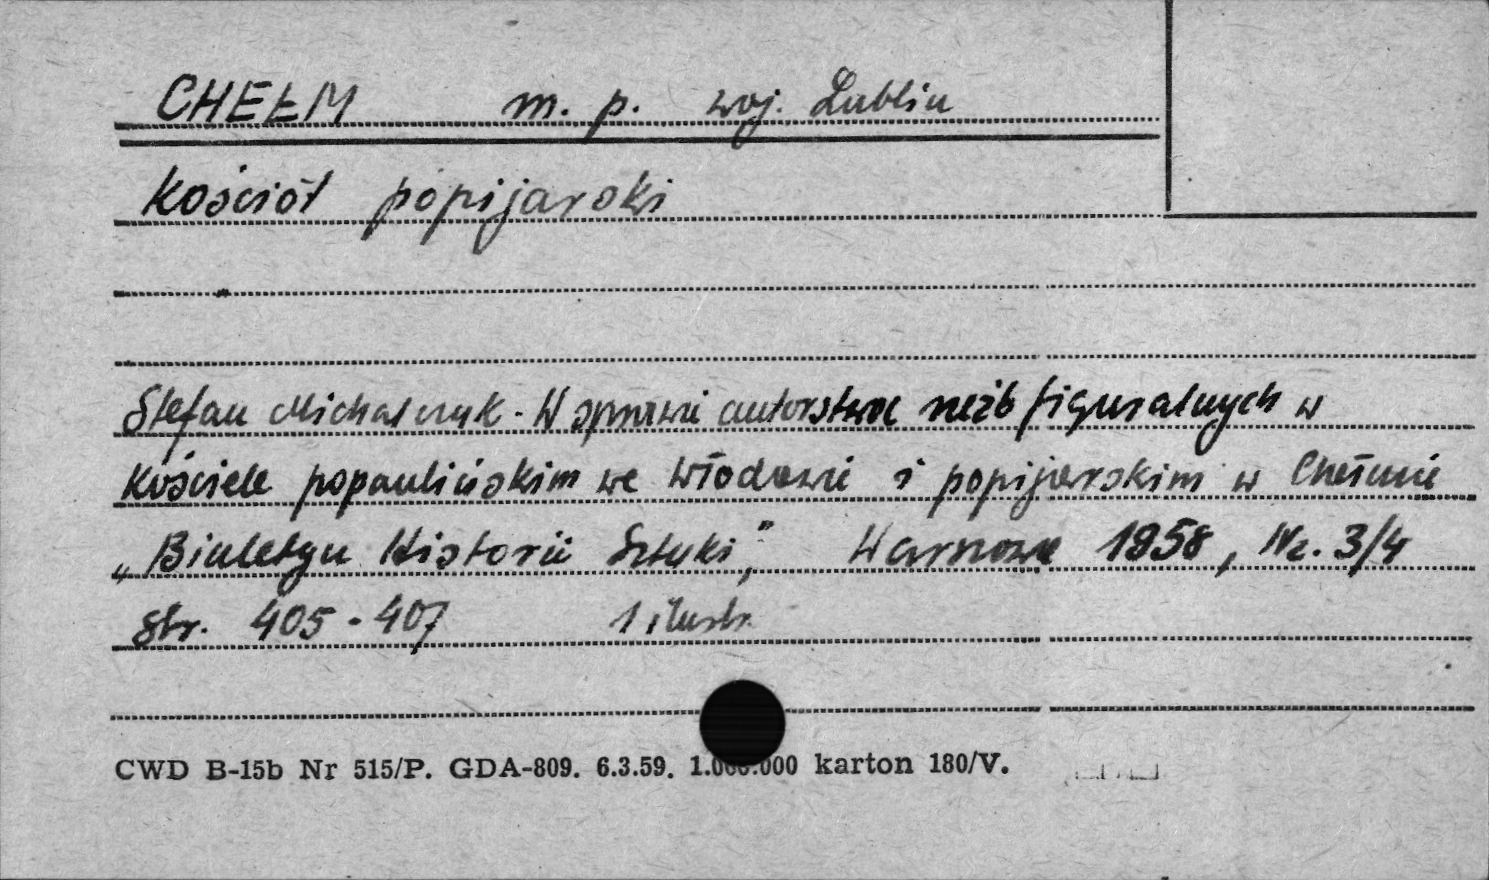 CHEŁM m. p. woj. Lublin
Kościół popijarski
Stefan Michalczuk. W sprawie autorstwa rzeźb figuralnych w
Kościele popaulińskim we Włodawie i popijarskim w Chełmie
„Biuletyn Historii Sztuki," Warszawa 1958, Nr. 3/4
str. 405-407 1 ilustr.
CWD B-15b Nr 515/P. GDA-809. 6.3.59. 1.000.000 karton 180/V.